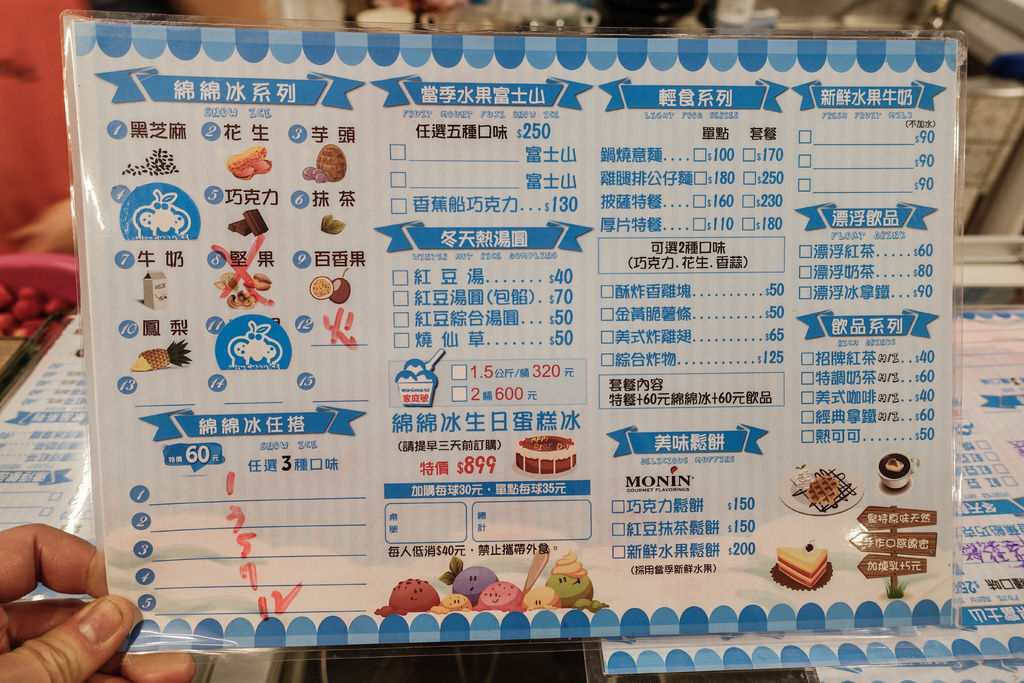 綿綿冰系列
SNOW ICE
1 黑芝麻
2 花生
3 芋頭
4
5 巧克力
6 抹茶
7 牛奶
MILK
8 堅果
9 百香果
10 鳳梨
11
12
13
14
15
綿綿冰任搭
SNOW ICE
特價 60元
任選3種口味
1
2
3
4
5
1
5
7
12
當季水果富士山
FRUIT MOUNT FUJI SNOW ICE
任選五種口味 $250
富士山
富士山
香蕉船巧克力...$130
冬天熱湯圓
WINTER HOT RICE DUMPLING
紅豆湯............$40
紅豆湯圓(包餡).$70
紅豆綜合湯圓...$50
燒仙草............$50
家庭號
1.5公斤/桶 320 元
2桶600元
綿綿冰生日蛋糕冰
(請提早三天前訂購)
特價 $899
HAPPY BIRTHDAY
加購每球30元，單點每球35元
桌號
總計
每人低消$40元，禁止攜帶外食。
輕食系列
LIGHT FOOD SERIES
單點 套餐
鍋燒意麵....$100 $170
雞腿排公仔麵$180 $250
披薩特餐....$160 $230
厚片特餐....$110 $180
可選2種口味
(巧克力.花生.香蒜)
酥炸香雞塊..........$50
金黃脆薯條..........$50
美式炸雞翅..........$65
綜合炸物............$125
套餐內容
特餐+60元綿綿冰+60元飲品
美味鬆餅
DELICIOUS MUFFINS
MONIN
GOURMET FLAVORINGS
巧克力鬆餅 $150
紅豆抹茶鬆餅 $150
新鮮水果鬆餅 $200
(採用當季新鮮水果)
新鮮水果牛奶
FRESH FRUIT MILK
(不加水)
$90
$90
$90
漂浮飲品
FLOAT DRINK
漂浮紅茶......$60
漂浮奶茶......$80
漂浮冰拿鐵...$90
飲品系列
RICH DRINKS
招牌紅茶H/I..$40
特調奶茶H/I..$60
美式咖啡H/I..$40
經典拿鐵H/I..$60
熱可可........$50
堅持原味天然
手作口感綿密
加煉乳+5元